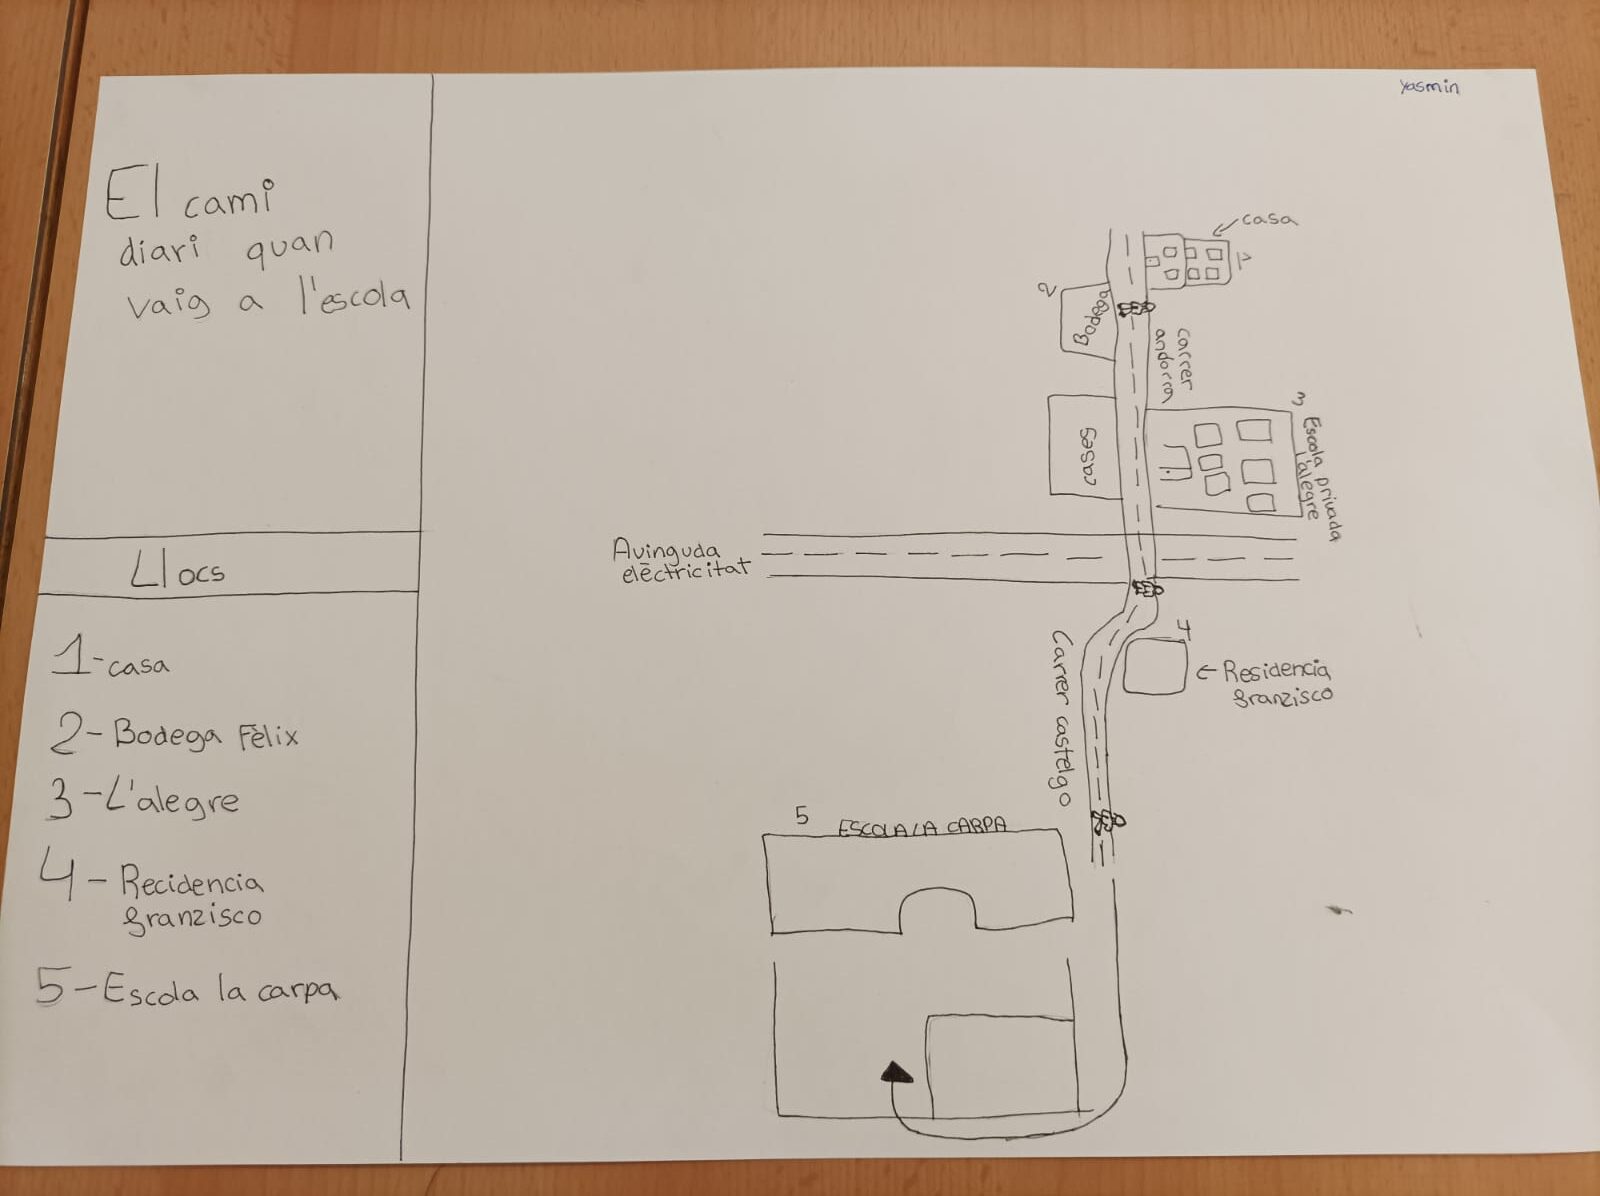 yasmin
El cami
diari quan
vaig a l'escola
Llocs
1-casa
2-Bodega Fèlix
3-L'alegre
4-Recidencia
granzisco
5-Escola la carpa
casa
1
2
Bodega
carrer
andorra
cases
3 Escola privada
l'alegre
Avinguda
elèctricitat
4
Carrer castelgo
← Residencia
granzisco
5 ESCOLA LA CARPA